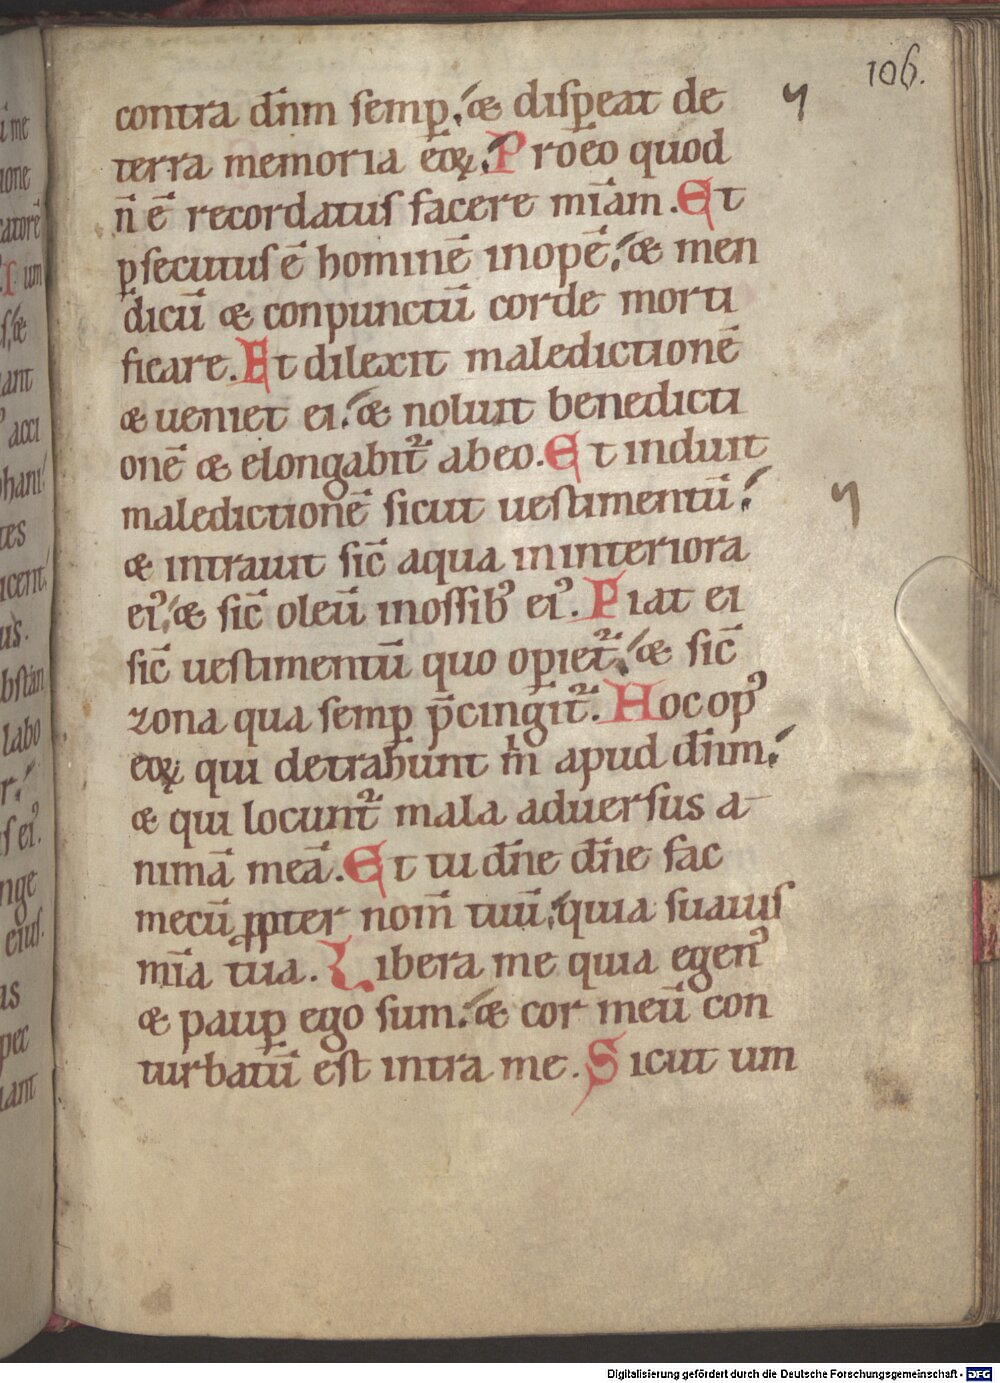 106.
contra dn̄m semp̱; & disp̱eat de
terra memoria eoꝝ. Pro eo quod
n̄ ē recordatus facere mīam. Et
ꝑsecutus ē hominē inopē; & men
dicū & conpunctū corde morti
ficare. Et dilexit maledictionē
& ueniet ei; & noluit benedicti
onē & elongabit᷑ ab eo. Et induit
maledictionē sicut uestimentū;
& intrauit sic̄ aqua in interiora
eiꝰ; & sic̄ oleū in ossibꝰ eiꝰ. Fiat ei
sic̄ uestimentū quo opiet᷑; & sic̄
zona qua semꝑ p̄cingit᷑. Hoc opꝰ
eoꝝ qui detrahunt m̄ apud dn̄m;
& qui locunt᷑ mala aduersus a-
nimā meā. Et tu dn̄e dn̄e fac
mecū ꝓpter nom̄ tuū; quia suauis
mīa tua. Libera me quia egenꝰ
& pauꝑ ego sum; & cor meū con
turbatū est intra me. Sicut um
Digitalisierung gefördert durch die Deutsche Forschungsgemeinschaft - DFG